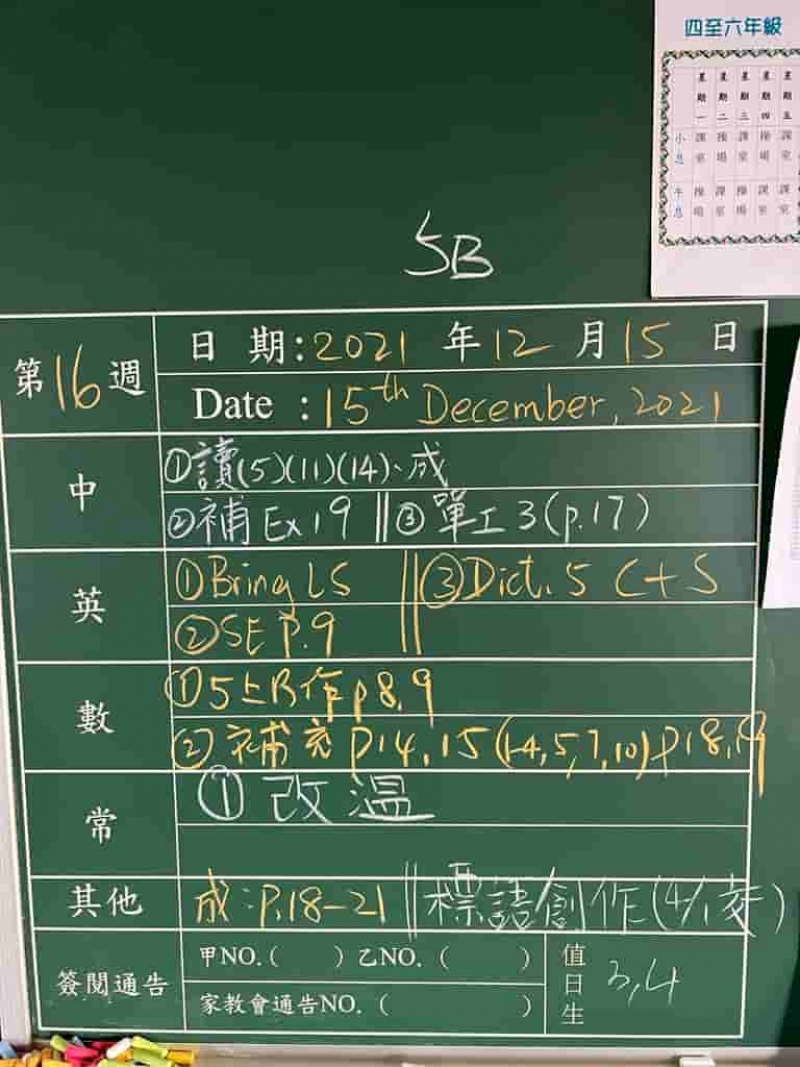 四至六年級
星期一 星期二 星期三 星期四 星期五
小息 課室 操場 課室 操場 課室
午息 操場 課室 操場 課室 課室
5B
第16週
日 期:2021 年 12 月 15 日
Date : 15th December, 2021
中
①讀(5)(11)(14)、成
②補Ex19 ||③單工3(p.17)
英
①Bring LS ||③Dict. 5 C+S
②SE p.9
數
①5上B作p8,9
②補充p14,15(1-4,5,7,10)p18,19
常
①改溫
其他
成:P.18-21 ||標語創作(4/1交)
簽閱通告
甲NO.( )乙NO.( )
家教會通告NO.( )
值日生
3,4